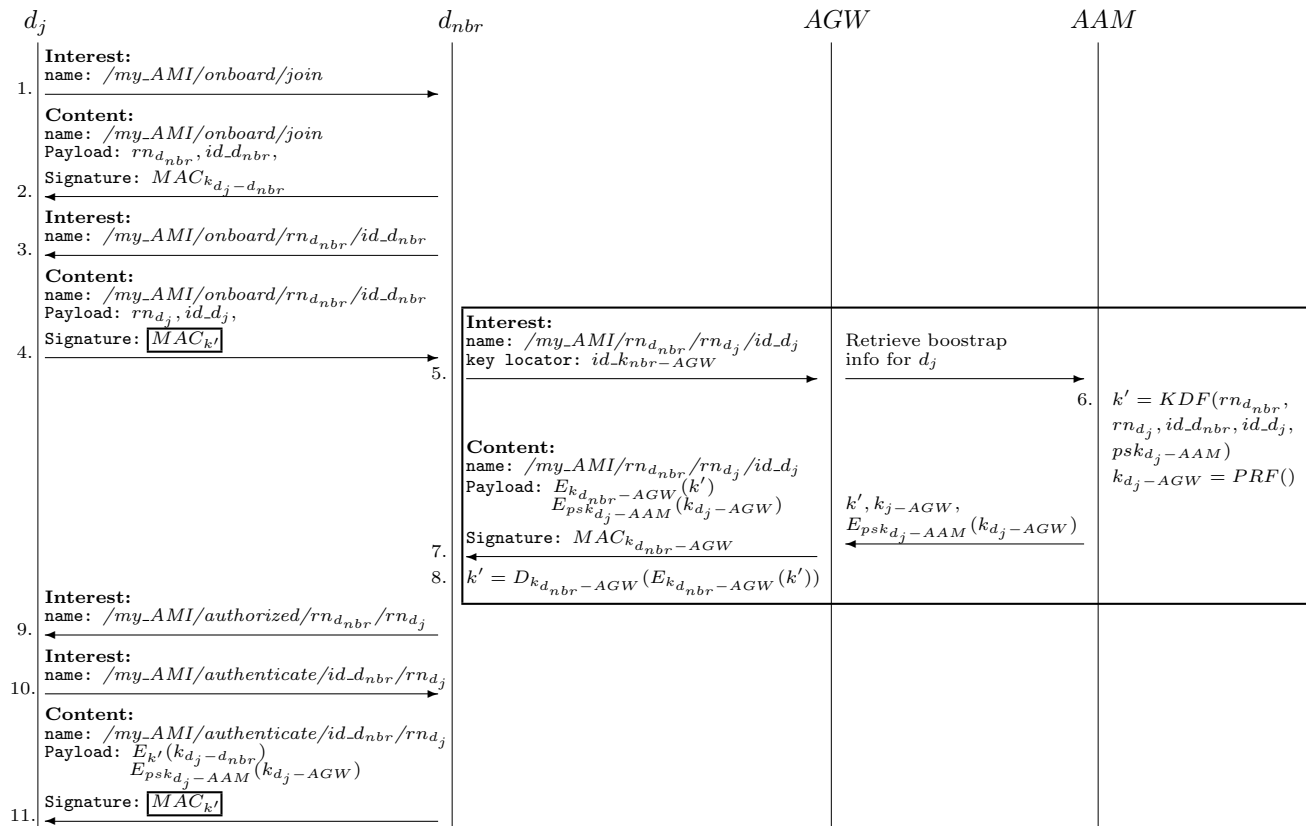 d_j d_{nbr} AGW AAM
Interest:
name: /my_AMI/onboard/join
1.
Content:
name: /my_AMI/onboard/join
Payload: rn_{d_{nbr}}, id_d_{nbr},
Signature: MAC_{k_{d_j-d_{nbr}}}
2.
Interest:
name: /my_AMI/onboard/rn_{d_{nbr}}/id_d_{nbr}
3.
Content:
name: /my_AMI/onboard/rn_{d_{nbr}}/id_d_{nbr}
Payload: rn_{d_j}, id_d_j,
Signature: MAC_{k'}
4.
Interest:
name: /my_AMI/rn_{d_{nbr}}/rn_{d_j}/id_d_j
key locator: id_k_{nbr-AGW}
5.
Retrieve boostrap
info for d_j
6.
k' = KDF(rn_{d_{nbr}},
rn_{d_j}, id_d_{nbr}, id_d_j,
psk_{d_j-AAM})
k_{d_j-AGW} = PRF()
Content:
name: /my_AMI/rn_{d_{nbr}}/rn_{d_j}/id_d_j
Payload: E_{k_{d_{nbr}-AGW}}(k')
E_{psk_{d_j-AAM}}(k_{d_j-AGW})
Signature: MAC_{k_{d_{nbr}-AGW}}
7.
k', k_{j-AGW},
E_{psk_{d_j-AAM}}(k_{d_j-AGW})
8. k' = D_{k_{d_{nbr}-AGW}}(E_{k_{d_{nbr}-AGW}}(k'))
Interest:
name: /my_AMI/authorized/rn_{d_{nbr}}/rn_{d_j}
9.
Interest:
name: /my_AMI/authenticate/id_d_{nbr}/rn_{d_j}
10.
Content:
name: /my_AMI/authenticate/id_d_{nbr}/rn_{d_j}
Payload: E_{k'}(k_{d_j-d_{nbr}})
E_{psk_{d_j-AAM}}(k_{d_j-AGW})
Signature: MAC_{k'}
11.